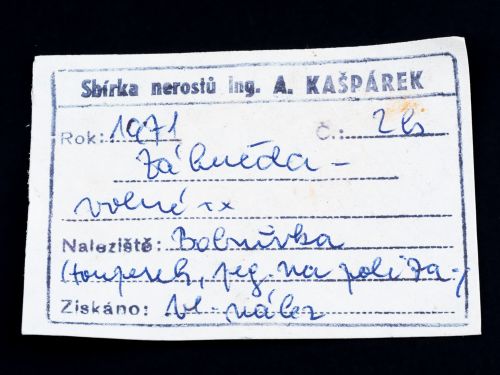 Sbírka nerostů ing. A. KAŠPÁREK
Rok: 1971 Č.: 2b
Záhněda -
volné xx
Naleziště: Bobrůvka
peg. na poli za
Získáno: vl. nález